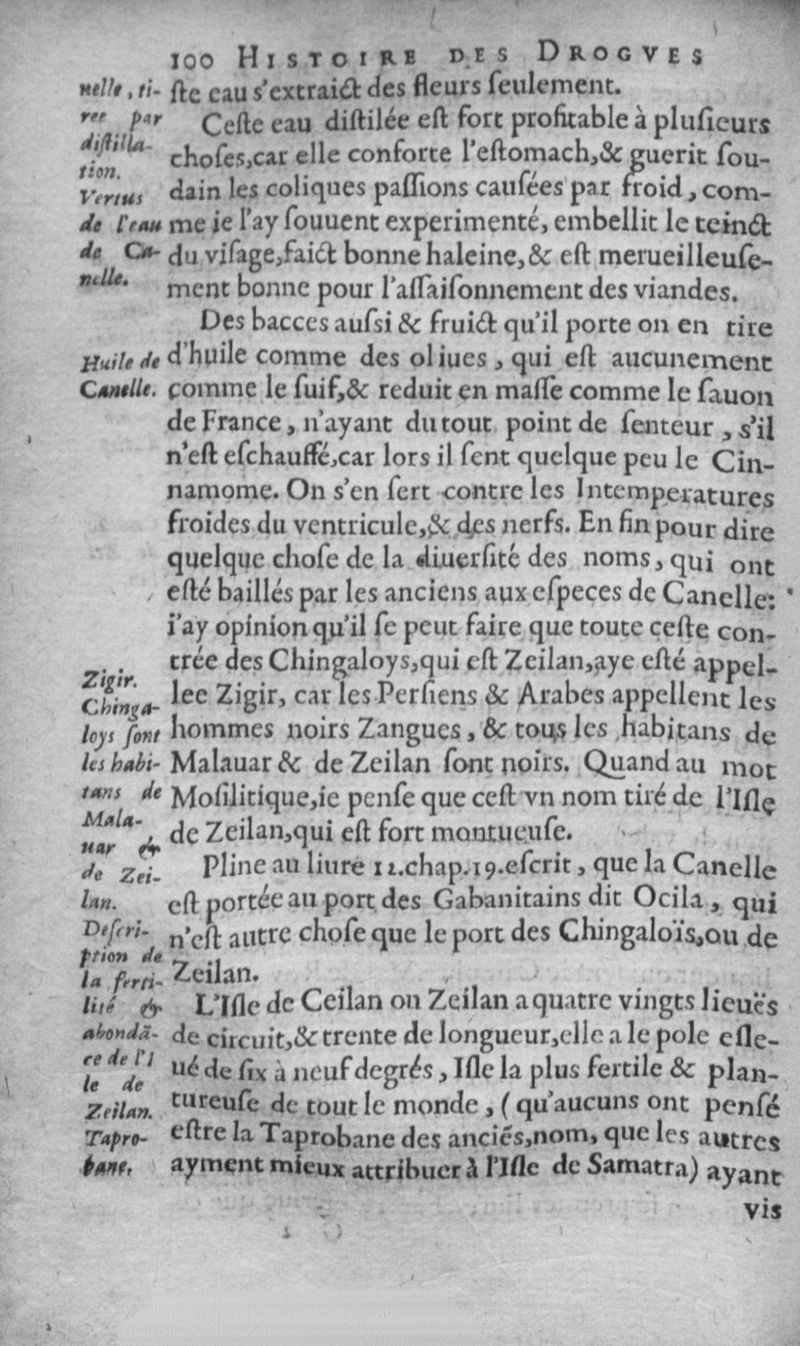 100 HISTOIRE DES DROGVES
nelle, ti-
ree par
distilla-
tion.
Vertus
de l'eau
de Ca-
nelle.
ſte eau s'extraict des fleurs ſeulement.
Ceſte eau diſtilée eſt fort profitable à pluſieurs
choſes,car elle conforte l'eſtomach,& guerit ſou-
dain les coliques paſſions cauſées par froid, com-
me ie l'ay ſouuent experimenté, embellit le teinct
du viſage,faict bonne haleine,& eſt merueilleuſe-
ment bonne pour l'aſſaiſonnement des viandes.
Huile de
Canelle.
Des bacces auſsi & fruict qu'il porte on en tire
d'huile comme des oliues, qui eſt aucunement
comme le ſuif,& reduit en maſſe comme le ſauon
de France, n'ayant du tout point de ſenteur, s'il
n'eſt eſchauffé,car lors il ſent quelque peu le Cin-
namome. On s'en ſert contre les Intemperatures
froides du ventricule,& des nerfs. En fin pour dire
quelque choſe de la diuerſité des noms, qui ont
eſté baillés par les anciens aux eſpeces de Canelle:
i'ay opinion qu'il ſe peut faire que toute ceſte con-
trée des Chingaloys,qui eſt Zeilan,aye eſté appel-
lee Zigir, car les Perſiens & Arabes appellent les
hommes noirs Zangues, & tous les habitans de
Malauar & de Zeilan ſont noirs. Quand au mot
Moſilitique,ie penſe que ceſt vn nom tiré de l'Iſle
de Zeilan,qui eſt fort montueuſe.
Zigir.
Chinga-
loys ſont
les habi-
tans de
Mala-
uar &
de Zei-
lan.
Pline au liure 12.chap.19.eſcrit, que la Canelle
eſt portée au port des Gabanitains dit Ocila, qui
n'eſt autre choſe que le port des Chingaloïs,ou de
Zeilan.
Deſcri-
ption de
la ferti-
lité &
abondã-
ce de l'I
le de
Zeilan.
Tapro-
bane,
L'Iſle de Ceilan ou Zeilan a quatre vingts lieuës
de circuit,& trente de longueur,elle a le pole eſle-
ué de ſix à neuf degrés, Iſle la plus fertile & plan-
tureuſe de tout le monde, (qu'aucuns ont penſé
eſtre la Taprobane des anciẽs,nom, que les autres
ayment mieux attribuer à l'Iſle de Samatra) ayant
vis